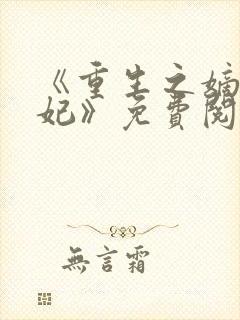 《重生之嫡
妃》免費閱
無言霜